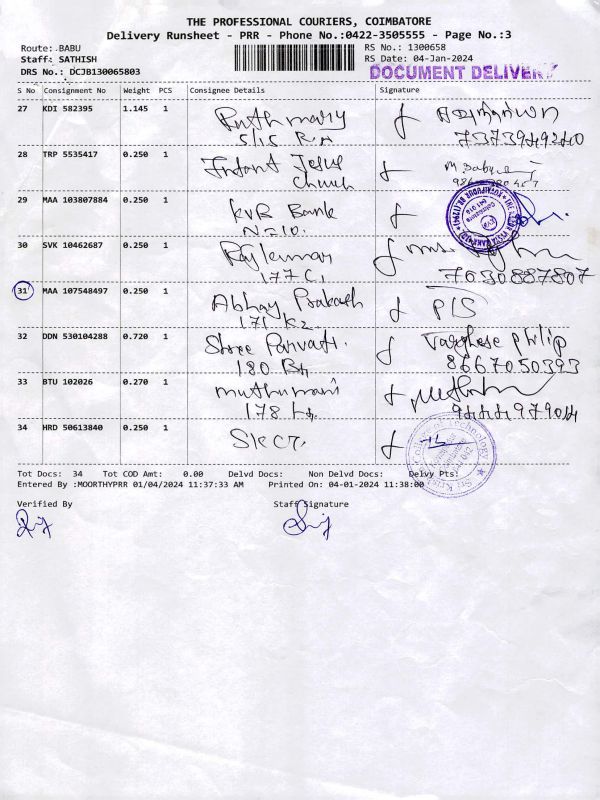 THE PROFESSIONAL COURIERS, COIMBATORE
Delivery Runsheet - PRR - Phone No.:0422-3505555 - Page No.:3
Route: BABU RS No.: 1300658
Staff: SATHISH RS Date: 04-Jan-2024
DRS No.: DCJB130065803 DOCUMENT DELIVERY
S No Consignment No Weight PCS Consignee Details Signature
27 KDI 582395 1.145 1 Ruthmary
5/15 7373949240
28 TRP 5535417 0.250 1 Infant Jesus M. Baby
Church
29 MAA 103807884 0.250 1 KVB Bank
30 SVK 10462687 0.250 1 Rajkumar
177 C, 7030887807
31 MAA 107548497 0.250 1 Abhay Prakash P/S
171 K2
32 DDN 530104288 0.720 1 Shree Parvati Varghese Philip
180 8667050393
33 BTU 102026 0.270 1 muthumani
178 944497904
34 HRD 50613840 0.250 1 SKCT
Tot Docs: 34 Tot COD Amt: 0.00 Delvd Docs: Non Delvd Docs: Delvy Pts:
Entered By :MOORTHYPRR 01/04/2024 11:37:33 AM Printed On: 04-01-2024 11:38:00
Verified By Staff Signature